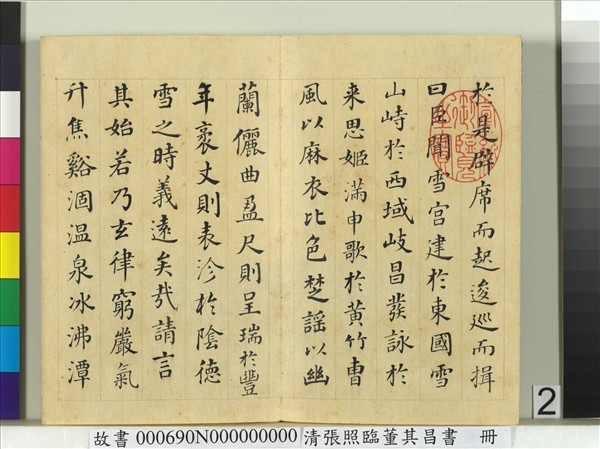 於是辟席而起逡巡而揖
曰臣聞雪宮建於東國雪
山峙於西域岐昌發詠於
来思姬滿申歌於黄竹曹
風以麻衣比色楚謠以幽
蘭儷曲盈尺則呈瑞於豐
年袤丈則表沴於陰德
雪之時義遠矣哉請言
其始若乃玄律窮嚴氣
升焦谿涸温泉冰沸潭
2
故書 000690N000000000 清張照臨董其昌書 冊